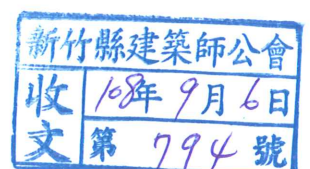 新竹縣建築師公會
收文
108年9月6日
第 794 號